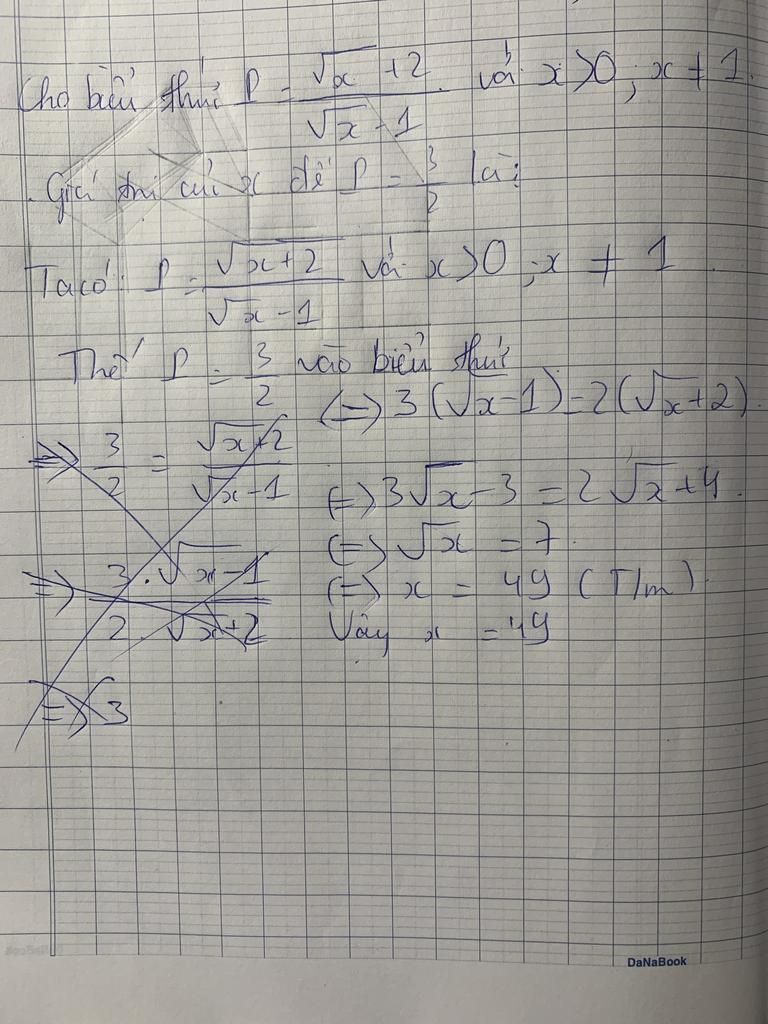 Cho biểu thức P = (√x + 2)/(√x - 1) với x > 0 ; x ≠ 1.
. Giá trị của x để P = 3/2 là:
Ta có: P = √(x+2)/(√x - 1) với x > 0 ; x ≠ 1.
Thế P = 3/2 vào biểu thức
=> 3/2 = (√x + 2)/(√x - 1)
=> (3 . √x - 1)/(2 . √x + 2)
=> 3
<=> 3(√x - 1) = 2(√x + 2).
<=> 3√x - 3 = 2√x + 4.
<=> √x = 7.
<=> x = 49 (T/m).
Vậy x = 49
DaNaBook